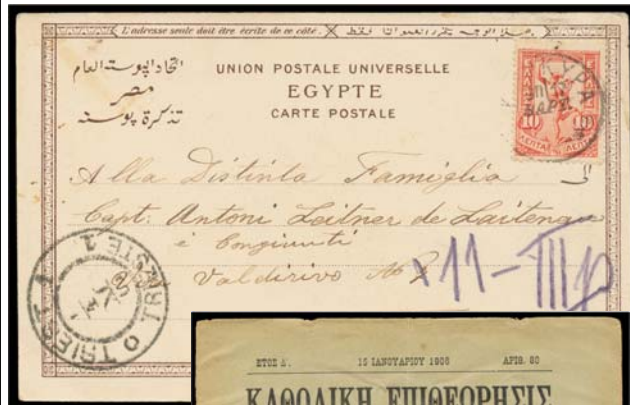 L'adresse seule doit être écrite de ce côté.
اتحاد البوسته العام
مصر
تذكرة بوسته
UNION POSTALE UNIVERSELLE
EGYPTE
CARTE POSTALE
ΕΛΛΑΣ
10 10
ΛΕΠΤΑ ΛΕΠΤΑ
Alla Distinta Famiglia
Capt. Antoni Leitner de Laitenau
e Congiunti
Valdirivo No 2
11-III
TRIEST 1 TRIESTE 1
ΕΤΟΣ Δ'. 15 ΙΑΝΟΥΑΡΙΟΥ 1906 ΑΡΙΘ. 80
ΚΑΘΟΛΙΚΗ ΕΠΙΘΕΩΡΗΣΙΣ